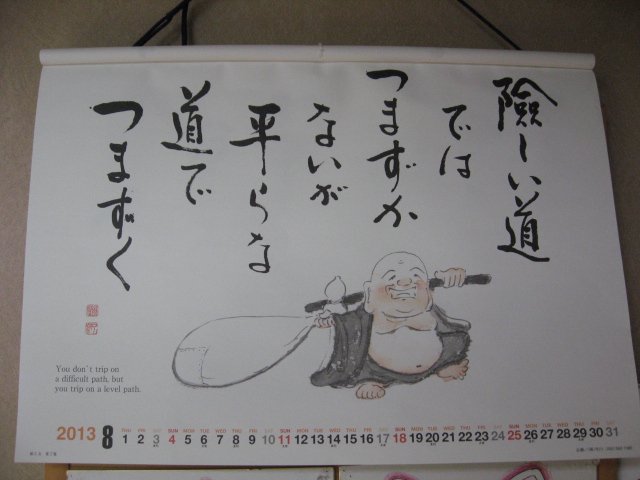 險しい道
では
つまずか
ないが
平らな
道で
つまずく
You don't trip on
a difficult path, but
you trip on a level path.
2013 8
THU FRI SAT SUN MON TUE WED THU FRI SAT SUN MON TUE WED THU FRI SAT SUN MON TUE WED THU FRI SAT SUN MON TUE WED THU FRI SAT
1 2 3 4 5 6 7 8 9 10 11 12 13 14 15 16 17 18 19 20 21 22 23 24 25 26 27 28 29 30 31